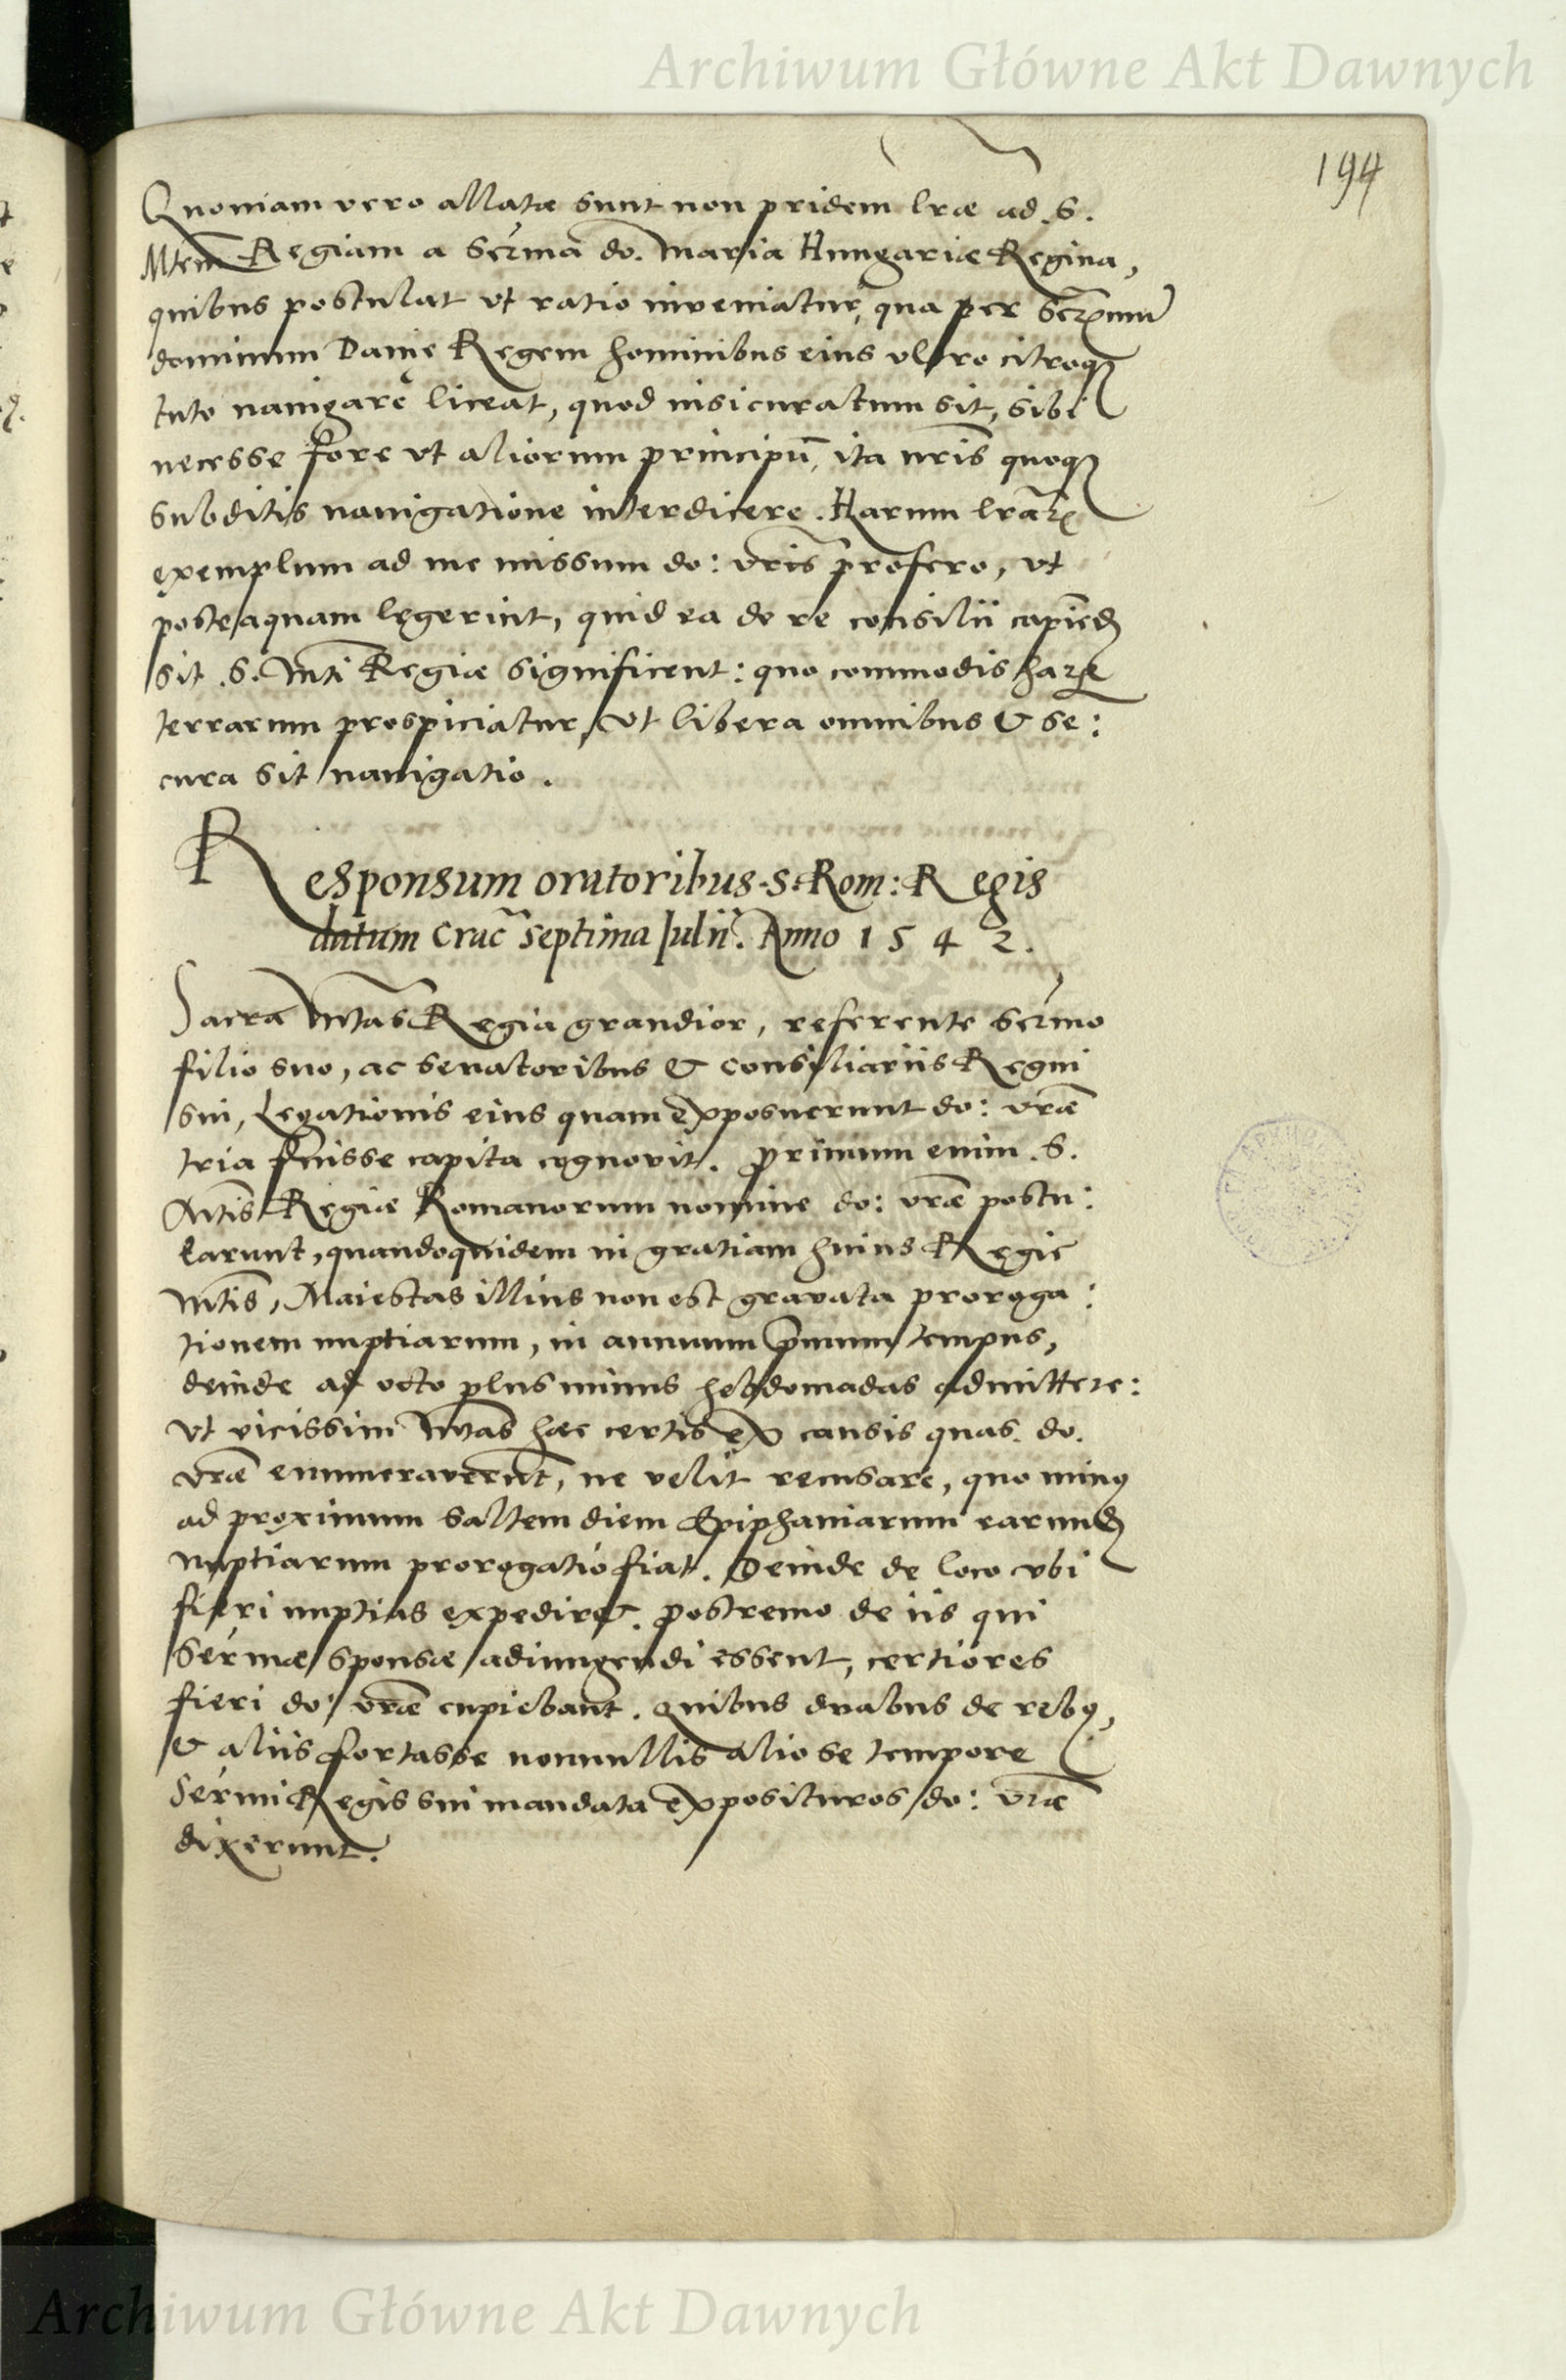 Archiwum Główne Akt Dawnych
194
Quoniam vero allatæ sunt non pridem lræ ad .S.
Mtem Regiam a Serma do. Maria Hungariæ Regina,
quibus postulat vt ratio inveniatur, qua per Sermum
dominum Danię Regem hominibus eius vltro citroq
tuto navigare liceat, quod nisi curatum sit, sibi
necesse fore vt aliorum principū, ita nris quoq
subditis navigatione interdicere. Harum lrar
exemplum ad me missum do: vris profero, vt
posteaquam legerint, quid ea de re consilii capiend
sit .S. Mti Regiæ significent: quo commodis har
terrarum prospiciatur, vt libera omnibus & se:
cura sit navigatio.
Responsum oratoribus .S. Rom: Regis
datum Crac septima Julii. Anno 1542.
Sacra Mtas Regia grandior, referente Sermo
filio suo, ac senatoribus & Consiliariis Regni
sui, Legationis eius quam exposuerunt do: vræ
tria fuisse capita cognovit. Primum enim .S.
Mtis Regiæ Romanorum nomine do: vræ postu:
larunt, quandoquidem in gratiam huius Regie
Mtis, Maiestas illius non est gravata proroga:
tionem nuptiarum, in annuum primum tempus,
deinde ad octo plus minus hebdomadas admittere:
vt vicissim Mtas hæc certis ex causis quas. do.
vræ enumeraverunt, ne velit recusare, quo minꝰ
ad proximum saltem diem Epiphaniarum earund
nuptiarum prorogatio fiat. Deinde de loco vbi
fieri nuptias expediret. Postremo de iis qui
Sermæ sponsæ adiungendi essent, certiores
fieri do: vræ cupiebant. Quibus duabus de rebꝰ,
& aliis fortasse nonnullis alio se tempore
Sermi Regis sui mandata exposituros do: vræ
dixerunt.
Archiwum Główne Akt Dawnych